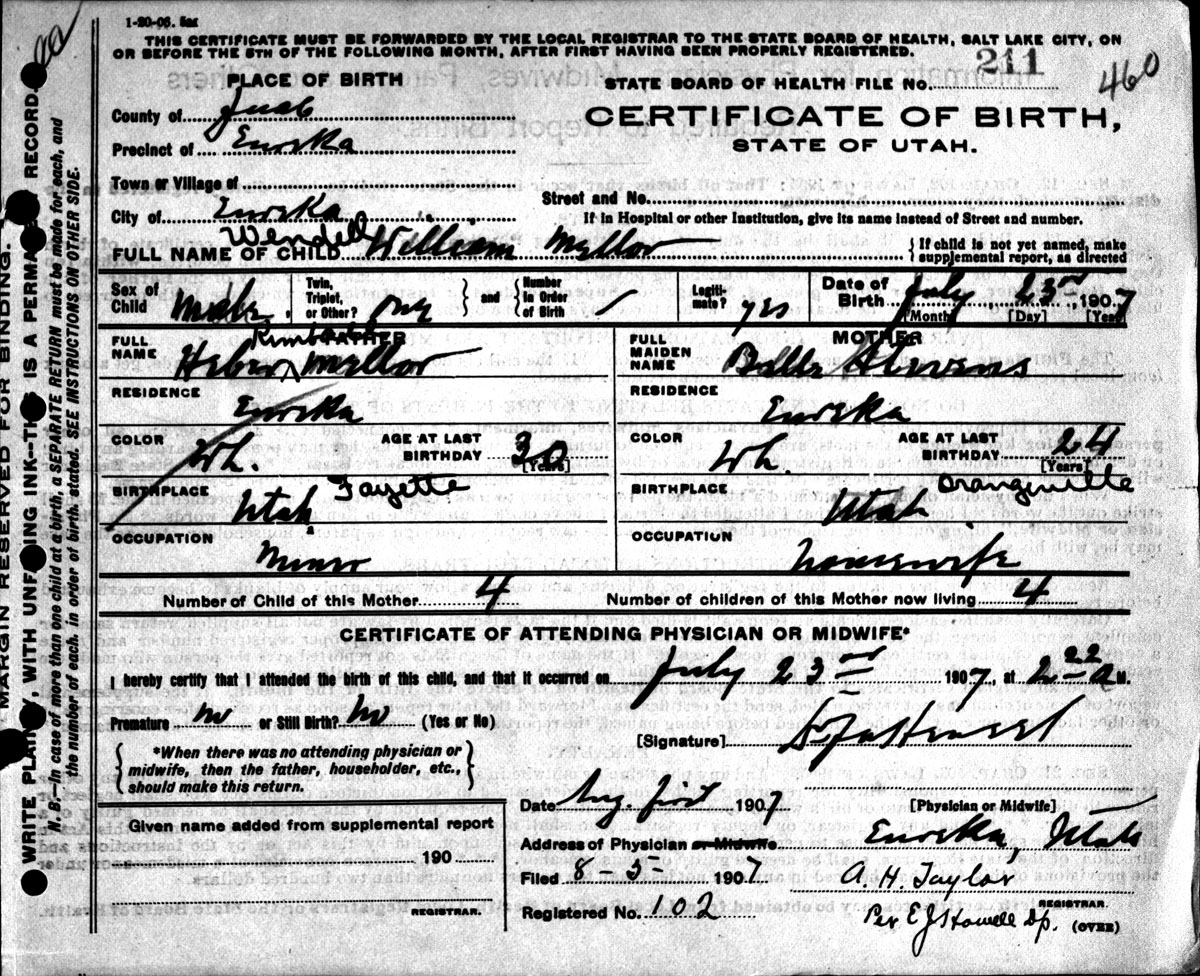 1-20-06. 5m
THIS CERTIFICATE MUST BE FORWARDED BY THE LOCAL REGISTRAR TO THE STATE BOARD OF HEALTH, SALT LAKE CITY, ON
OR BEFORE THE 5TH OF THE FOLLOWING MONTH, AFTER FIRST HAVING BEEN PROPERLY REGISTERED.
PLACE OF BIRTH
STATE BOARD OF HEALTH FILE NO. 211
460
County of Juab
CERTIFICATE OF BIRTH,
Precinct of Eureka
STATE OF UTAH.
Town or Village of
Street and No.
City of Eureka
If in Hospital or other Institution, give its name instead of Street and number.
FULL NAME OF CHILD Wendell William Mellor
{ If child is not yet named, make
supplemental report, as directed
Sex of Child Male
Twin, Triplet, or Other? one
{ and { Number in Order of Birth
Legiti- mate? yes
Date of Birth July 23rd 1907
[Month] [Day] [Year]
FATHER
FULL NAME Heber Kimball Mellor
RESIDENCE Eureka
COLOR Wh. AGE AT LAST BIRTHDAY 30 [Years]
BIRTHPLACE Utah Fayette
OCCUPATION Miner
MOTHER
FULL MAIDEN NAME Belle Stevens
RESIDENCE Eureka
COLOR Wh. AGE AT LAST BIRTHDAY 24 [Years]
BIRTHPLACE Utah Orangeville
OCCUPATION Housewife
Number of Child of this Mother 4 Number of children of this Mother now living 4
CERTIFICATE OF ATTENDING PHYSICIAN OR MIDWIFE*
I hereby certify that I attended the birth of this child, and that it occurred on July 23rd 1907, at 2 22 a M.
Premature no or Still Birth? no (Yes or No)
[Signature]
{ *When there was no attending physician or
midwife, then the father, householder, etc.,
should make this return. }
Date Aug. first 1907
[Physician or Midwife]
Given name added from supplemental report
190
REGISTRAR.
Address of Physician or Midwife Eureka, Utah
Filed 8-5- 1907 A. H. Taylor
REGISTRAR.
Registered No. 102 Per E J Howell Dp. (OVER)
MARGIN RESERVED FOR BINDING.
WRITE PLAINLY, WITH UNFADING INK—THIS IS A PERMANENT RECORD.
N. B.—In case of more than one child at a birth, a SEPARATE RETURN must be made for each, and
the number of each, in order of birth, stated. SEE INSTRUCTIONS ON OTHER SIDE.